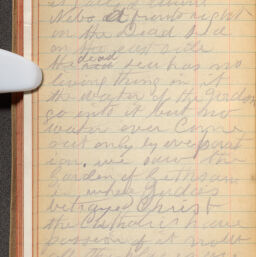 is called
Nebo it fronts right
on the Dead Sea
on the east side
the dead sea has no
living thing in it
the water of the Jordon
go into it but no
water ever Comes
out only by evaporat
ion. we saw the
Garden of Gethsam
where Judas
betrayed Christ
the Catholics have
possion of it now